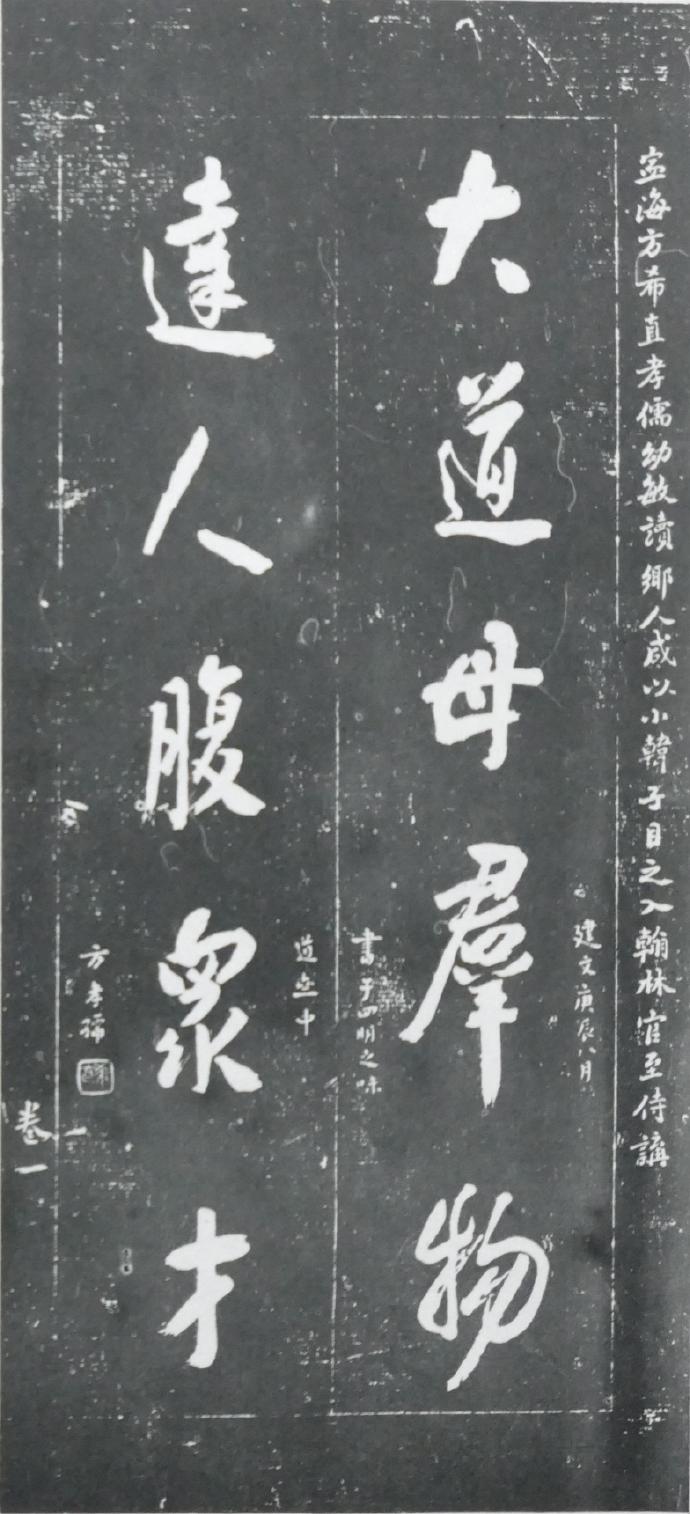 寧海方希直孝儒幼敏讀鄉人咸以小韓子目之入翰林官至侍講
建文庚辰八月
大道母羣物
書于四明之味
道𠫵中
達人腹衆才
方孝孺
卷一